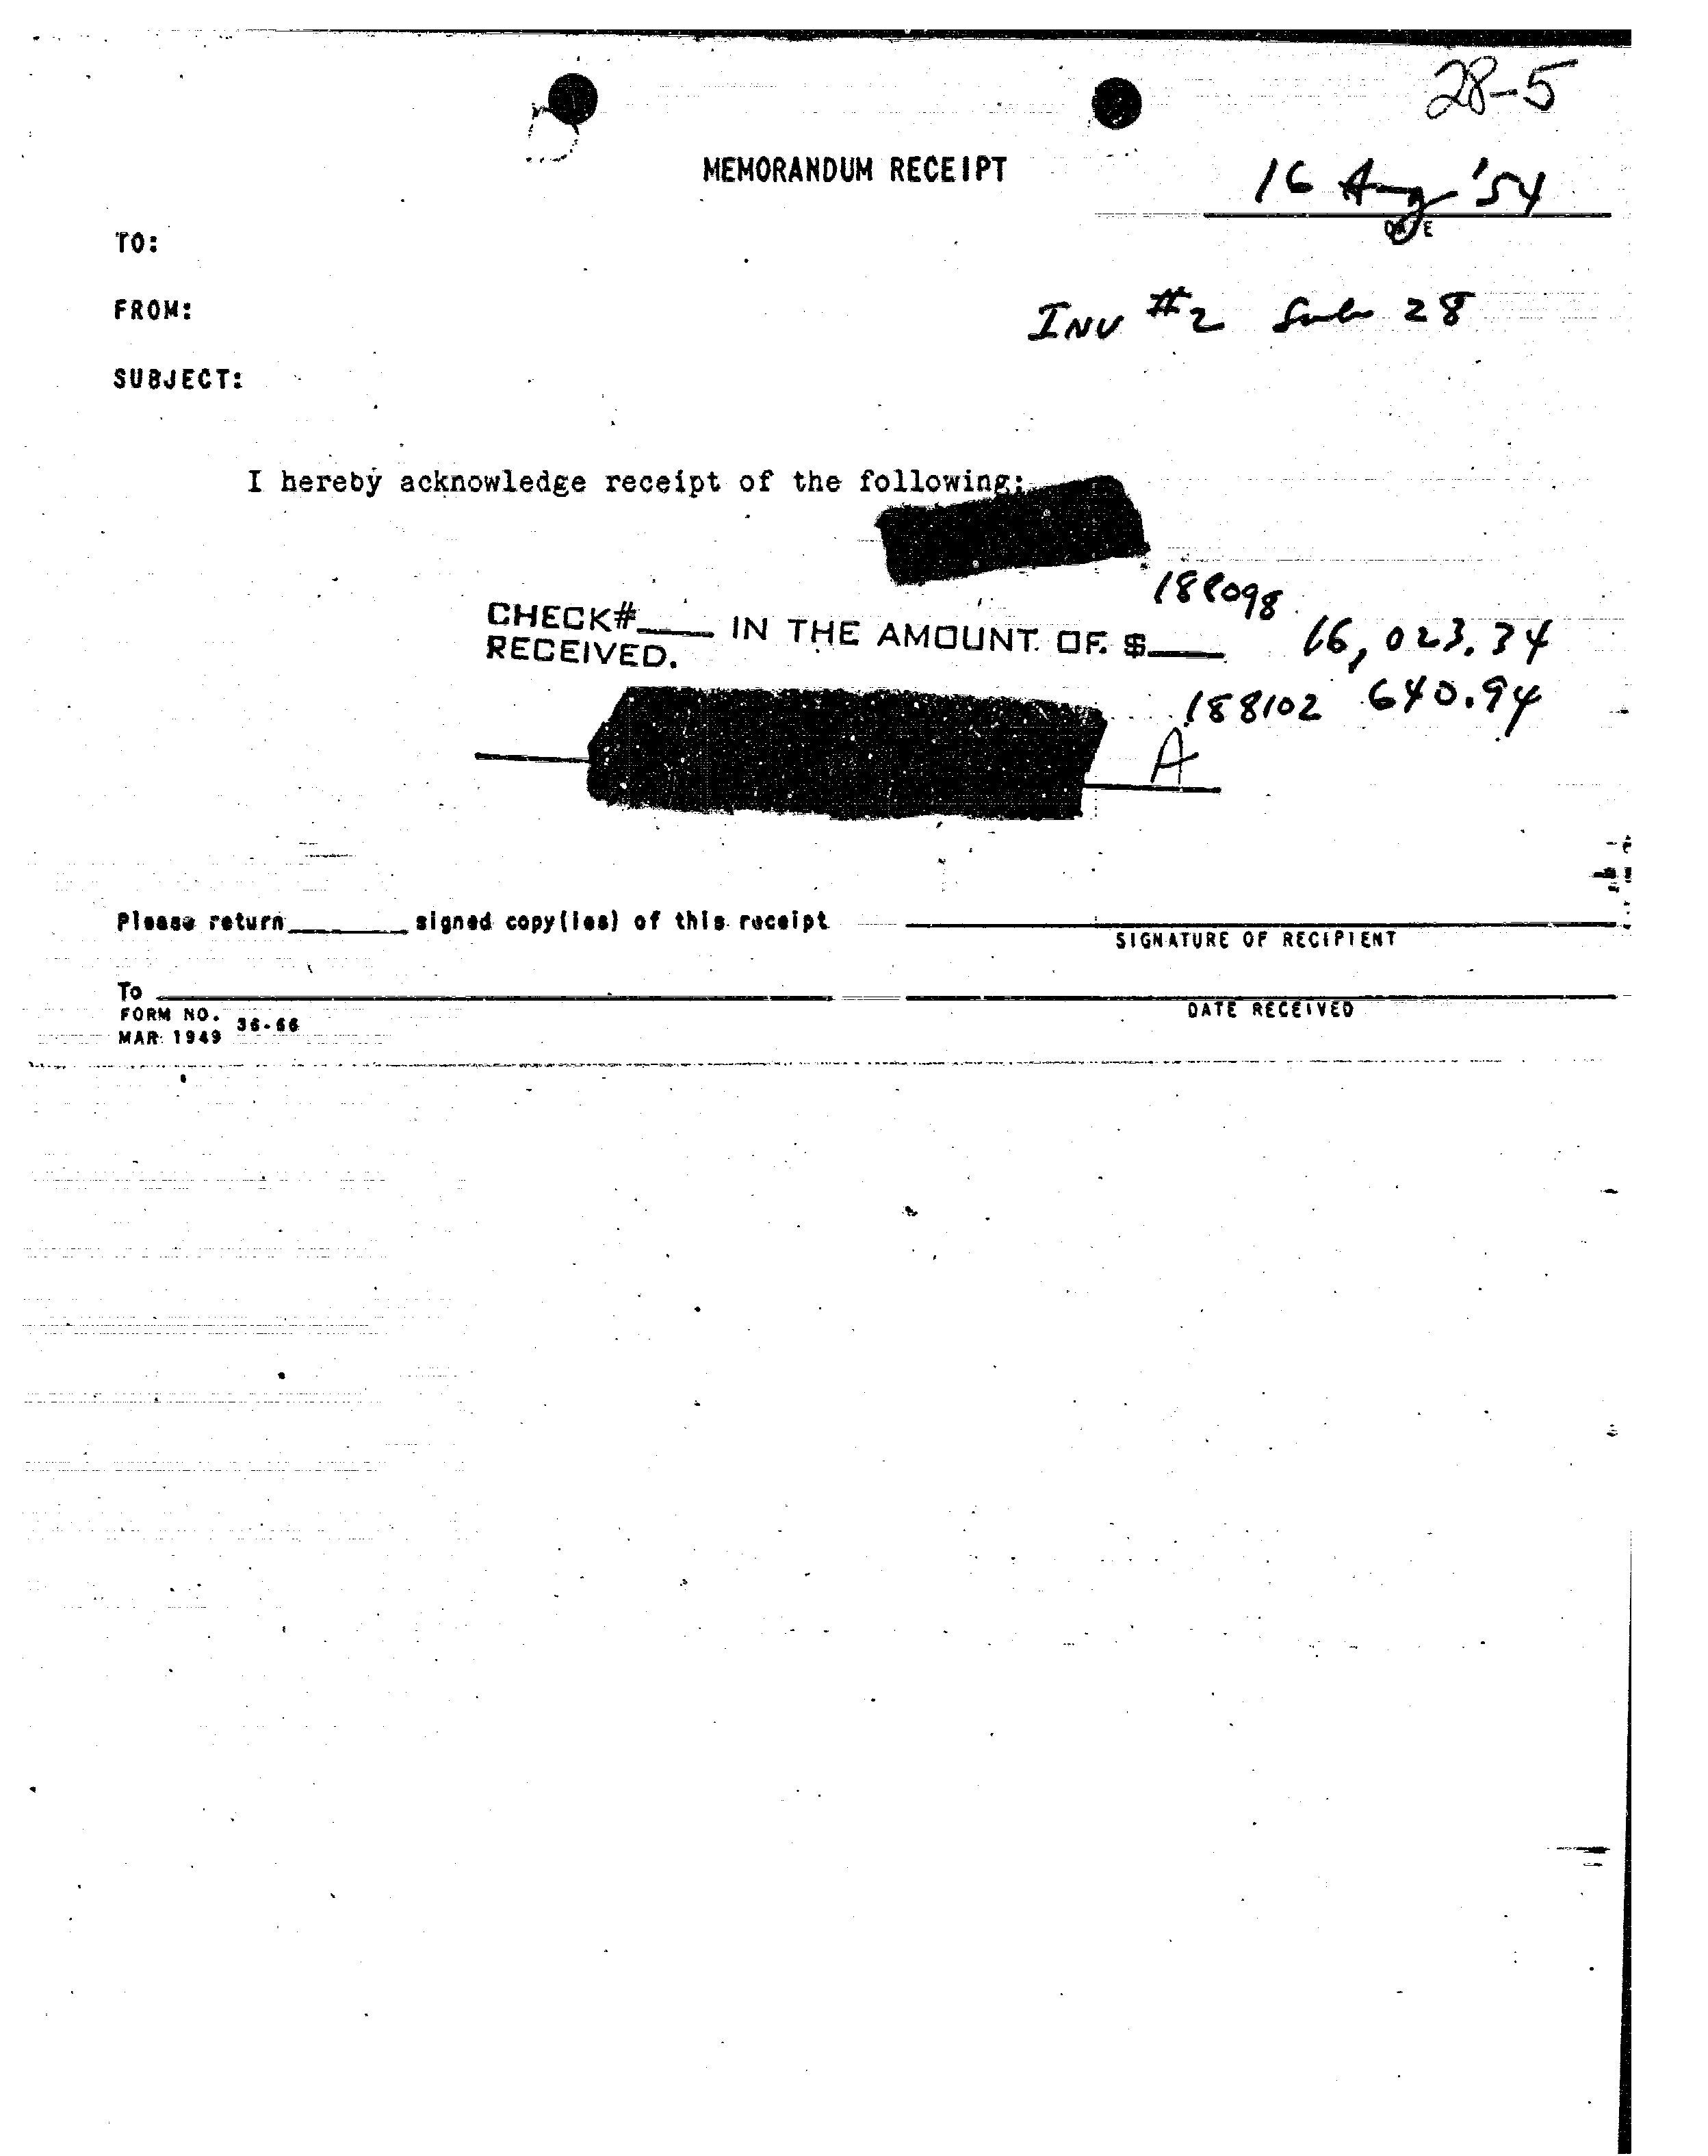 28-5
MEMORANDUM RECEIPT
16 Aug '54
DATE
TO:
FROM:
INV #2 Sub 28
SUBJECT:
I hereby acknowledge receipt of the following:
188098
CHECK#____ IN THE AMOUNT OF $____ 16,023.34
RECEIVED.
188102 640.94
A
Please return________signed copy(ies) of this receipt
SIGNATURE OF RECIPIENT
To
FORM NO. 36-66
MAR 1949
DATE RECEIVED